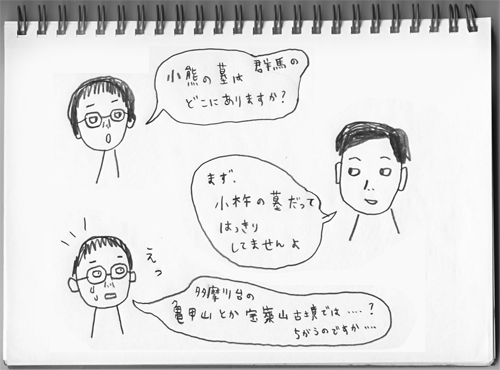 小熊の墓は 群馬の
どこにありますか?
まず、
小杵の墓だって
はっきり
してませんよ
えっ
多摩川台の
亀甲山とか宝莱山古墳では‥‥?
ちがうのですか‥‥